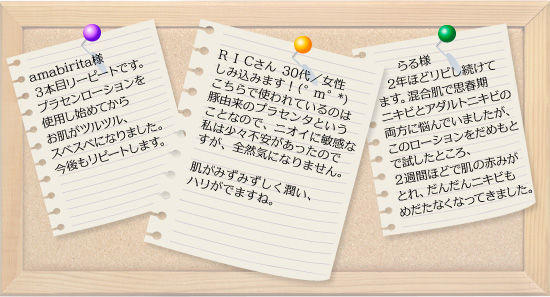 amabirita様
3本目リーピートです。
プラセンローションを
使用し始めてから
お肌がツルツル、
スベスベになりました。
今後もリピートします。
ＲＩＣさん 30代／女性
しみ込みます！(°m°*)
こちらで使われているのは
豚由来のプラセンタという
ことなので、ニオイに敏感な
私は少々不安があったので
すが、全然気になりません。
肌がみずみずしく潤い、
ハリがでますね。
らる様
2年ほどリピし続けて
ます。混合肌で思春期
ニキビとアダルトニキビの
両方に悩んでいましたが、
このローションをだめもと
で試したところ、
2週間ほどで肌の赤みが
とれ、だんだんニキビも
めだたなくなってきました。